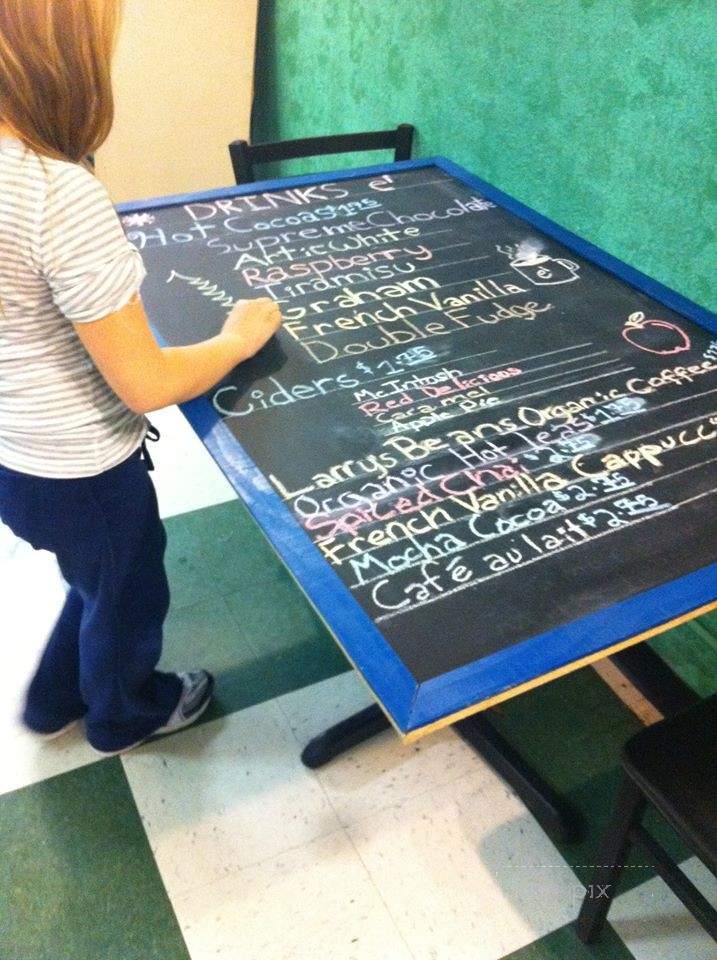 DRINKS e'
Hot Cocoa $1.95
Supreme Chocolate
Artic White
Raspberry
Tiramisu
Graham
French Vanilla
Double Fudge
Ciders $1.75
Mc.Intosh
Red Delicious
Caramel
Apple Pie
Larry's Beans Organic Coffee
Organic Hot Teas 1.75
Spiced Chai 2.75
French Vanilla Cappucc
Mocha Cocoa $2.75
Café au lait $2.75
e'
pix